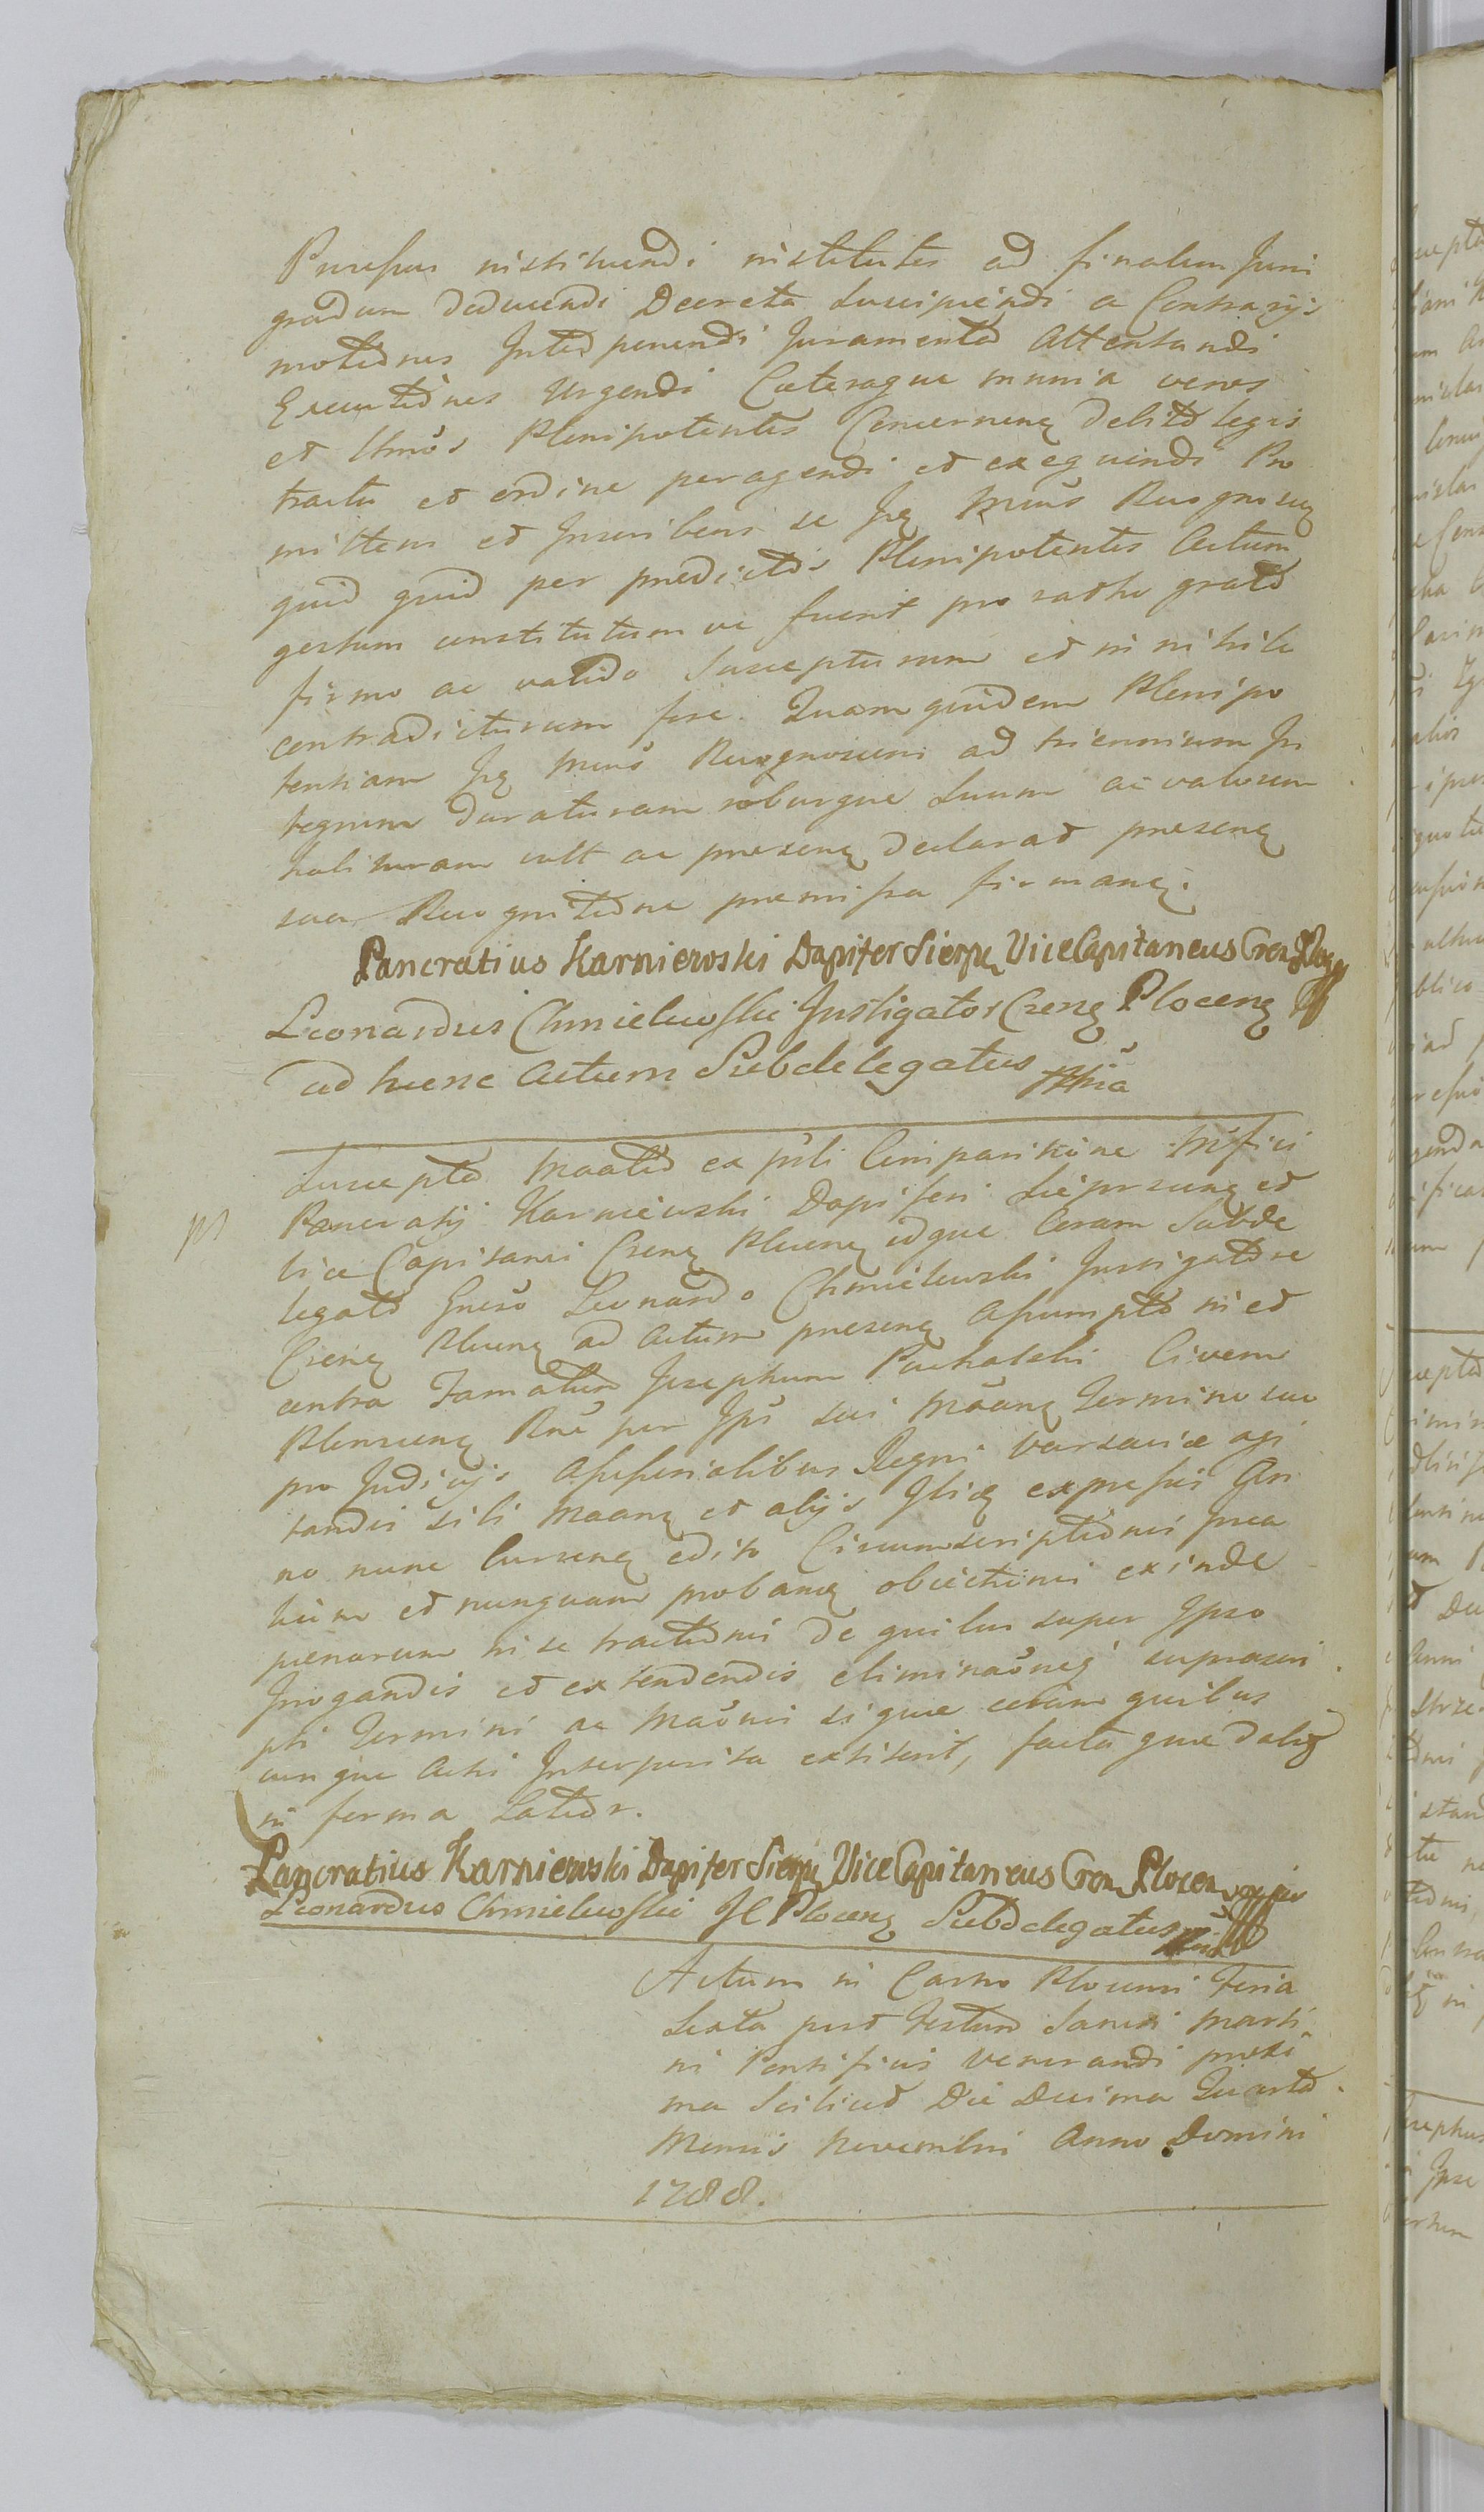 Processus instituendi institutos ad finalem Juris
gradum deducendi Decreta suscipiendi a Contrarijs
motiones Interponendi Juramenta Attentandi
Executiones Urgendi Caeteraque munia veros
et ltmos Plenipotentes Concernen debito legis
tractu et ordine peragendi et exequendi Pro
mittens et Inscribens se Iz Mnus Recognoscen
quid quid per praedictos Plenipotentes Actum
gestum constitutum ve fuerit pro ratho grato
firmo ac valido Suscepturum et in nihilo
contradicturum fore. Quam quidem Plenipo
tentiam Iz Mnus Recognoscens ad triennium In
tegrum duraturam roburque suum ac valorem
habituram vult ac praesen declarat praesen
sua Recognitione praemissa firman.
Pancratius Karniewski Dapifer Sierpe ViceCapitaneus Cren Plocen
Leonardus Chmielewski Instigator Cren Plocen
ad hunc Actum Subdelegatus mpria
Suscepta Maatio ex psli Comparitione Mtfici
Pancratij Karniewski Dapiferi Sieprscen et
Vice Capitanei Cren Plocen idque Coram Subde
legato Gneso Leonardo Chmielewski Instigatore
Cren Plocen ad Actum praesen Assumpto in et
contra Famatum Josephum Puchalski Civem
Plonscen Rne per Ips sui Moan Termino suo
pro Judicijs Assessorialibus Regni Varsaviae agi
tandis sibi Moan et alijs Iblis expressis An
no nunc Curren edito Circumscriptionis praa
tium et nunquam proban obiectionis exinde
paenarum in se tractionis de quibus super Ipso
Irrogandis et extendendis eliminaonis suprascri
pti Termini ac Maonis sigue coram quibus
cunque Actis Interposita extiterit, facta que dalis
in forma Latior.
Pancratius Karniewski Dapifer Sierpe ViceCapitaneus Cren Plocen
Leonardus Chmielewski IC Plocen Subdelegatus
Actum in Castro Plocensi Feria
Sexta post Festum Sancti Marti
ni Pontificis Venerandi proxi
ma Scilicet Die Decima Quarta
Mensis Novembri Anno Domini
1788.